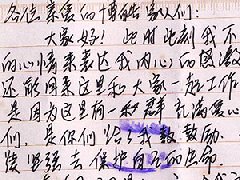 各位亲爱的博皓家人们:
大家好! 此时此刻我不
的心情来表达我内心的感激
还能用来这里和大家一起工作
是因为这里有一群充满爱心
们, 是你们给了我 鼓励
坚强去保护自己的生命